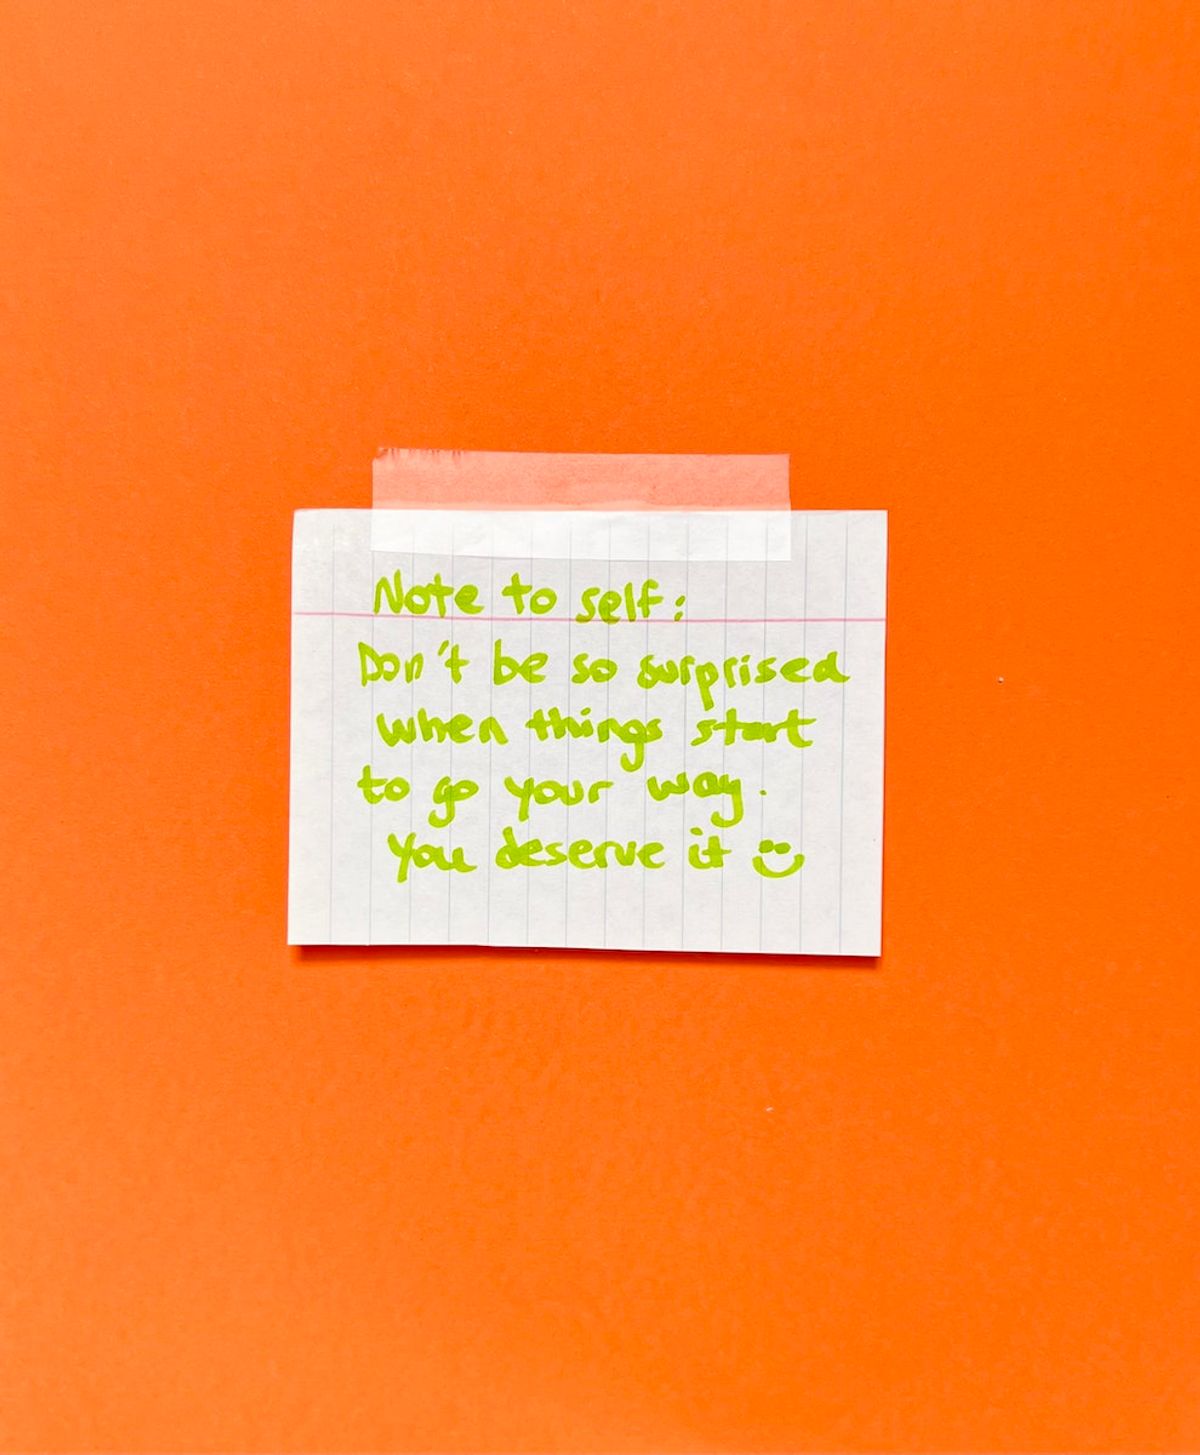 Note to self:
Don't be so surprised
when things start
to go your way.
You deserve it